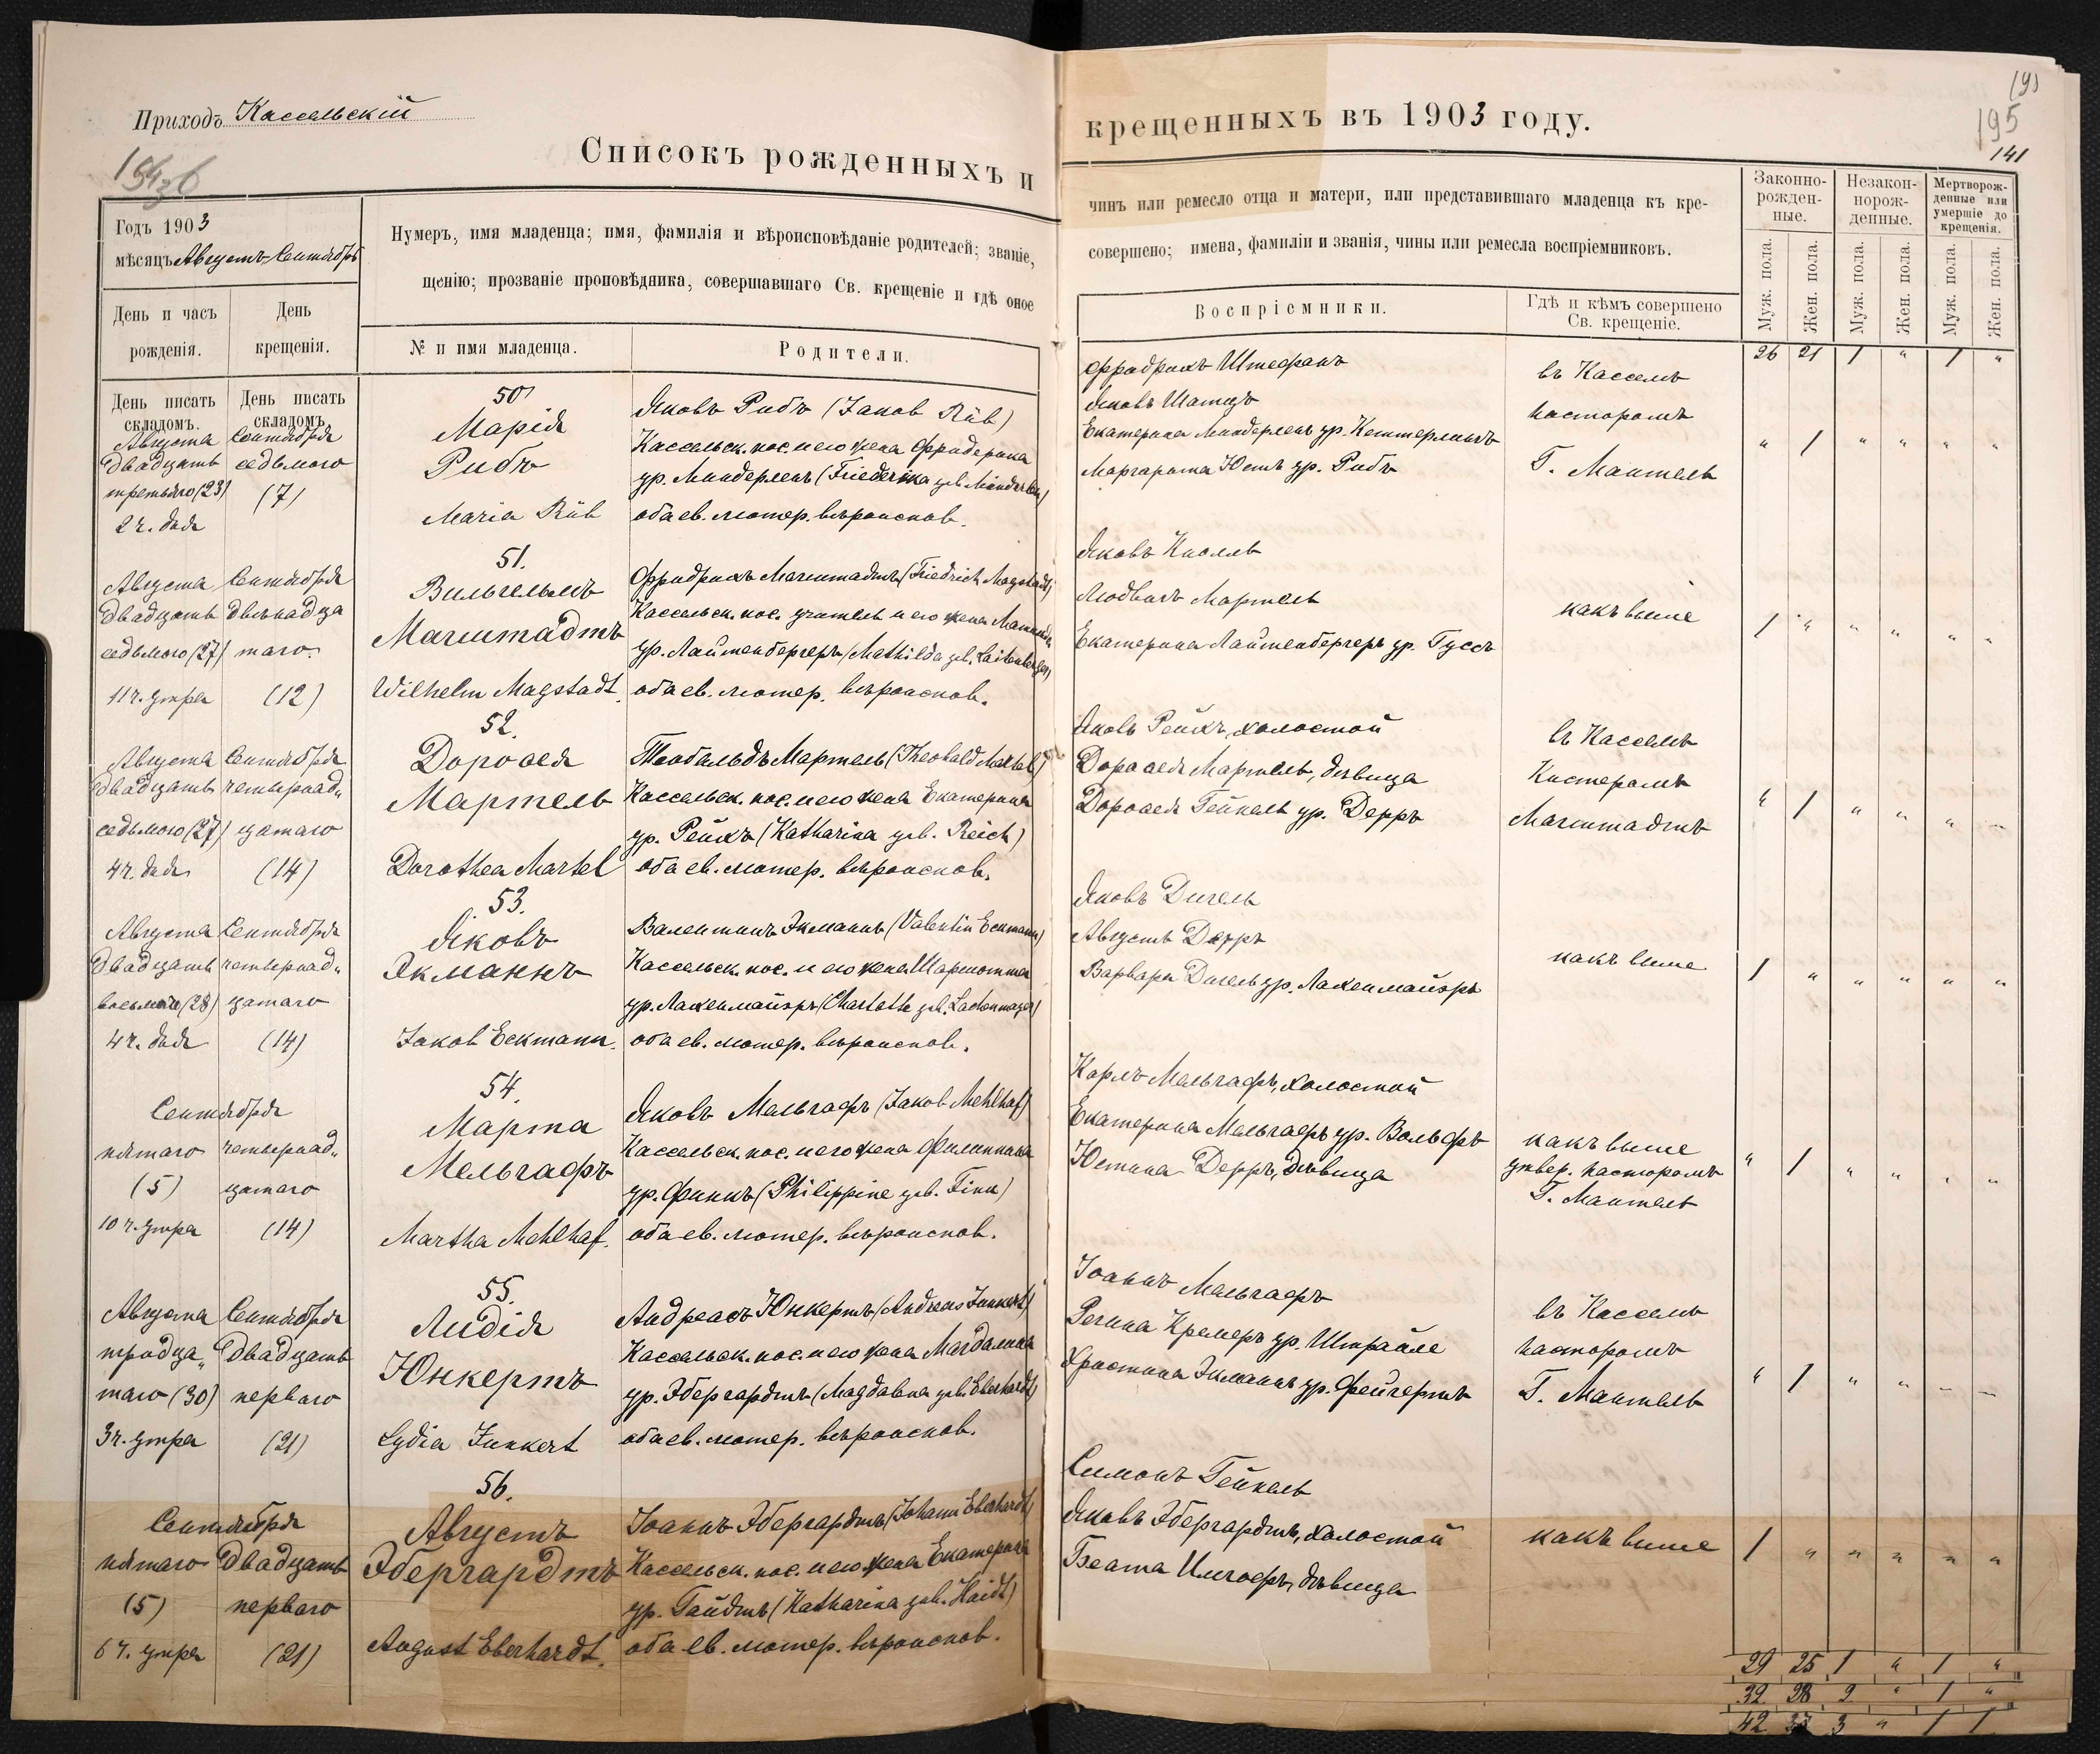 Приходъ Кассельскій
Списокъ рожденныхъ и
крещенныхъ въ 1903 году.
(9)
195
141
Годъ 1903
мѣсяцъ Августъ-Сентябрь
Нумеръ, имя младенца; имя, фамилія и вѣроисповѣданіе родителей; званіе,
щенію; прозваніе проповѣдника, совершавшаго Св. крещеніе и гдѣ оное
чинъ или ремесло отца и матери, или представившаго младенца къ кре-
совершено; имена, фамиліи и званія, чины или ремесла воспріемниковъ.
Законно-
рожден-
ные.
Незакон-
норож-
денные.
Мертворож-
денные или
умершіе до
крещенія.
День и часъ
рожденія.
День
крещенія.
№ и имя младенца.
Родители.
Воспріемники.
Гдѣ и кѣмъ совершено
Св. крещеніе.
Муж. пола.
Жен. пола.
Муж. пола.
Жен. пола.
Муж. пола.
Жен. пола.
26 21 1 " 1 "
День писать
складомъ.
День писать
складомъ.
Августа
двадцать
третьяго (23)
2 ч. дня
Сентября
седьмого
(7)
50
Марія
Рибъ
Maria Rüb
Яковъ Рибъ (Jakob Rüb)
Кассельск. пос. и его жена Фридерика
ур. Миндерленъ (Friederika geb. Minderlen)
оба ев. лютер. вѣроиспов.
Фридрихъ Штефанъ
Яковъ Шатцъ
Екатерина Миндерленъ ур. Кеттерлингъ
Маргарета Юстъ ур. Рибъ
въ Кассель
пасторомъ
Г. Мантель
" 1 " " " "
Августа
двадцать
седьмого (27)
11 ч. утра
Сентября
двѣнадца
таго
(12)
51.
Вильгельмъ
Магштадтъ
Wilhelm Magstadt.
Фридрихъ Магштадтъ (Friedrich Magstadt)
Кассельск. пос. учитель и его жена Матильда
ур. Лайтенбергеръ (Mathilda geb. Laitenberger)
оба ев. лютер. вѣроиспов.
Яковъ Кнолль
Людвигъ Мартель
Екатерина Лайтенбергеръ ур. Гуссъ
какъ выше
1 " " " " "
Августа
двадцать
седьмого (27)
4 ч. дня
Сентября
четырнад„
цатаго
(14)
52.
Дороѳея
Мартель
Dorothea Martel
Теобальдъ Мартель (Theobald Martel)
Кассельск. пос. и его жена Екатерина
ур. Рейхъ (Katharina geb. Reich)
оба ев. лютер. вѣроиспов.
Яковъ Рейхъ, холостой
Дороѳея Мартель, дѣвица
Дороѳея Гейнель ур. Дерръ
въ Кассель
Кистеромъ
Магштадтъ
" 1 " " " "
Августа
двадцать
восьмого (28)
4 ч. дня
Сентября
четырнад„
цатаго
(14)
53.
Яковъ
Экманнъ
Jakob Eckmann.
Валентинъ Экманнъ (Valentin Eckmann)
Кассельск. пос. и его жена Шарлотта
ур. Лахенмайэръ (Charlotte geb. Lachenmayer)
оба ев. лютер. вѣроиспов.
Яковъ Дигель
Августъ Дерръ
Варвара Дигель ур. Лахенмайэръ
какъ выше
1 " " " " "
Сентября
пятаго
(5)
10 ч. утра
четырнад„
цатаго
(14)
54.
Марта
Мельгафъ
Martha Mehlhaf.
Яковъ Мельгафъ (Jakob Mehlhaf)
Кассельск. пос. и его жена Филиппина
ур. Финкъ (Philippine geb. Fink)
оба ев. лютер. вѣроиспов.
Карлъ Мельгафъ, холостой
Екатерина Мельгафъ ур. Вольфъ
Юстина Дерръ, дѣвица
какъ выше
утвер. пасторомъ
Г. Мантель
" 1 " " " "
Августа
тридца„
таго (30)
3 ч. утра
Сентября
двадцать
перваго
(21)
55.
Лидія
Юнкертъ
Lydia Junkert
Андреасъ Юнкертъ (Andreas Junkert)
Кассельск. пос. и его жена Магдалина
ур. Эбергардтъ (Magdalena geb. Eberhardt)
оба ев. лютер. вѣроиспов.
Іоаннъ Мельгафъ
Регина Кремеръ ур. Штрайле
Христина Экманнъ ур. Фейгертъ
въ Кассель
пасторомъ
Г. Мантель
" 1 " " " "
Сентября
пятаго
(5)
6 ч. утра
двадцать
перваго
(21)
56.
Августъ
Эбергардтъ
August Eberhardt.
Іоаннъ Эбергардтъ (Johann Eberhardt)
Кассельск. пос. и его жена Екатерина
ур. Гайдтъ (Katharina geb. Haidt)
оба ев. лютер. вѣроиспов.
Симонъ Гейнель
Яковъ Эбергардтъ, холостой
Беата Имгофъ, дѣвица
какъ выше
1 " " " " "
29 25 1 " 1 "
32 28 2 " 1 "
42 3 " 1 1